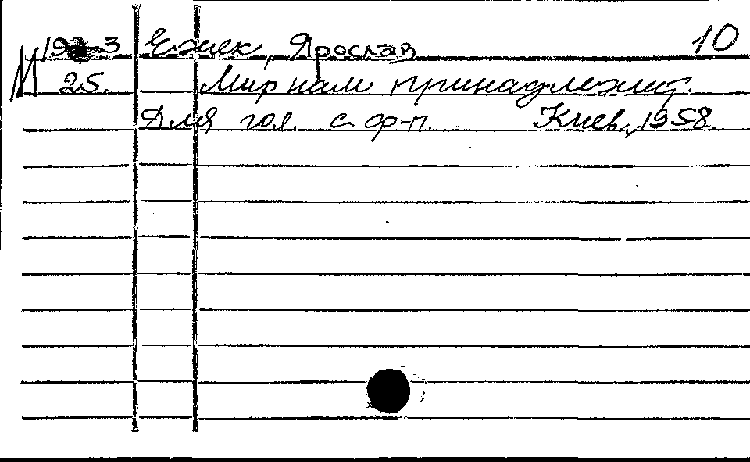 Ежек, Ярослав 10
М 25. Мир нам принадлежит.
Для гол. с ф-п. Киев, 1958.